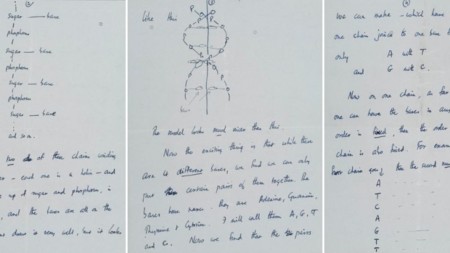 sugar — base
phosphorus
sugar — base
phosphorus
sugar — base
phosphorus
sugar — base
and so on.
of these chains winding
— each one is a helix — and
up of sugar and phosphorus, is
, and the bases are all on the
draw it very well, but it looks
like this
P
P
The model looks much nicer than this.
Now the exciting thing is that while there
are 4 different bases, we find we can only
put certain pairs of them together. The
bases have names. They are Adenine, Guanine,
Thymine & Cytosine. I will call them A, G, T
and C. Now we find that the pairs
we can make — which have
one chain joined to one base
only A with T
and G with C.
Now on one chain, as far
one can have the bases in any
order is fixed, then the order
chain is also fixed. For exam
first chain goes then the second must
A
T
C
A
G
T
T